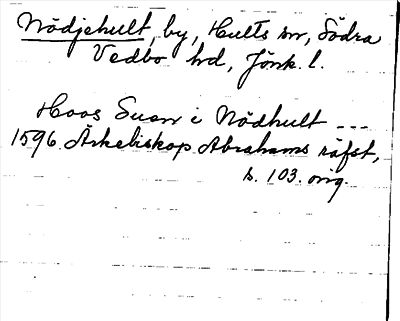 Nödjehult, by, Hults sn, Södra
Vedbo hd, Jönk. l.
Hoos Suen i Nödhult ---
1596. Ärkebiskop Abrahams räfst,
s. 103. orig.